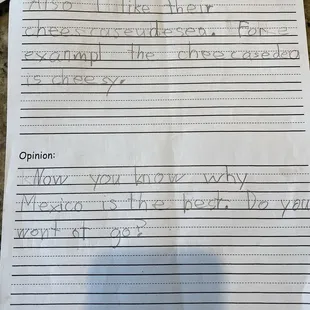 Also I like their
cheescaseudesea. For e
exanmpl the cheecasedea
is cheesy.
Opinion:
Now you know why
Mexico is the best. Do you
wont ot go?